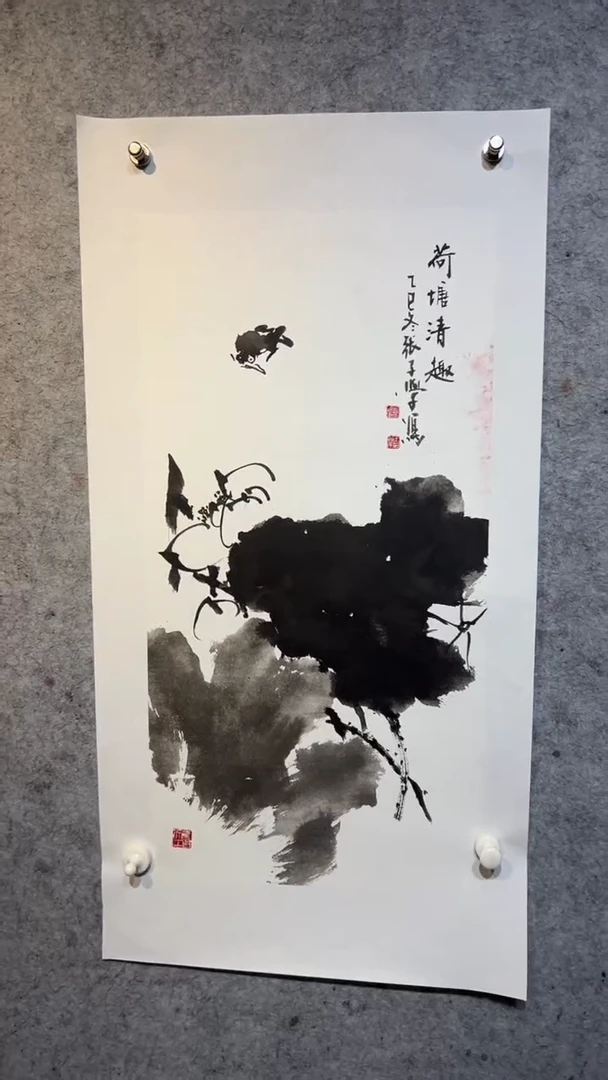 荷塘清趣
乙巳冬张子学写